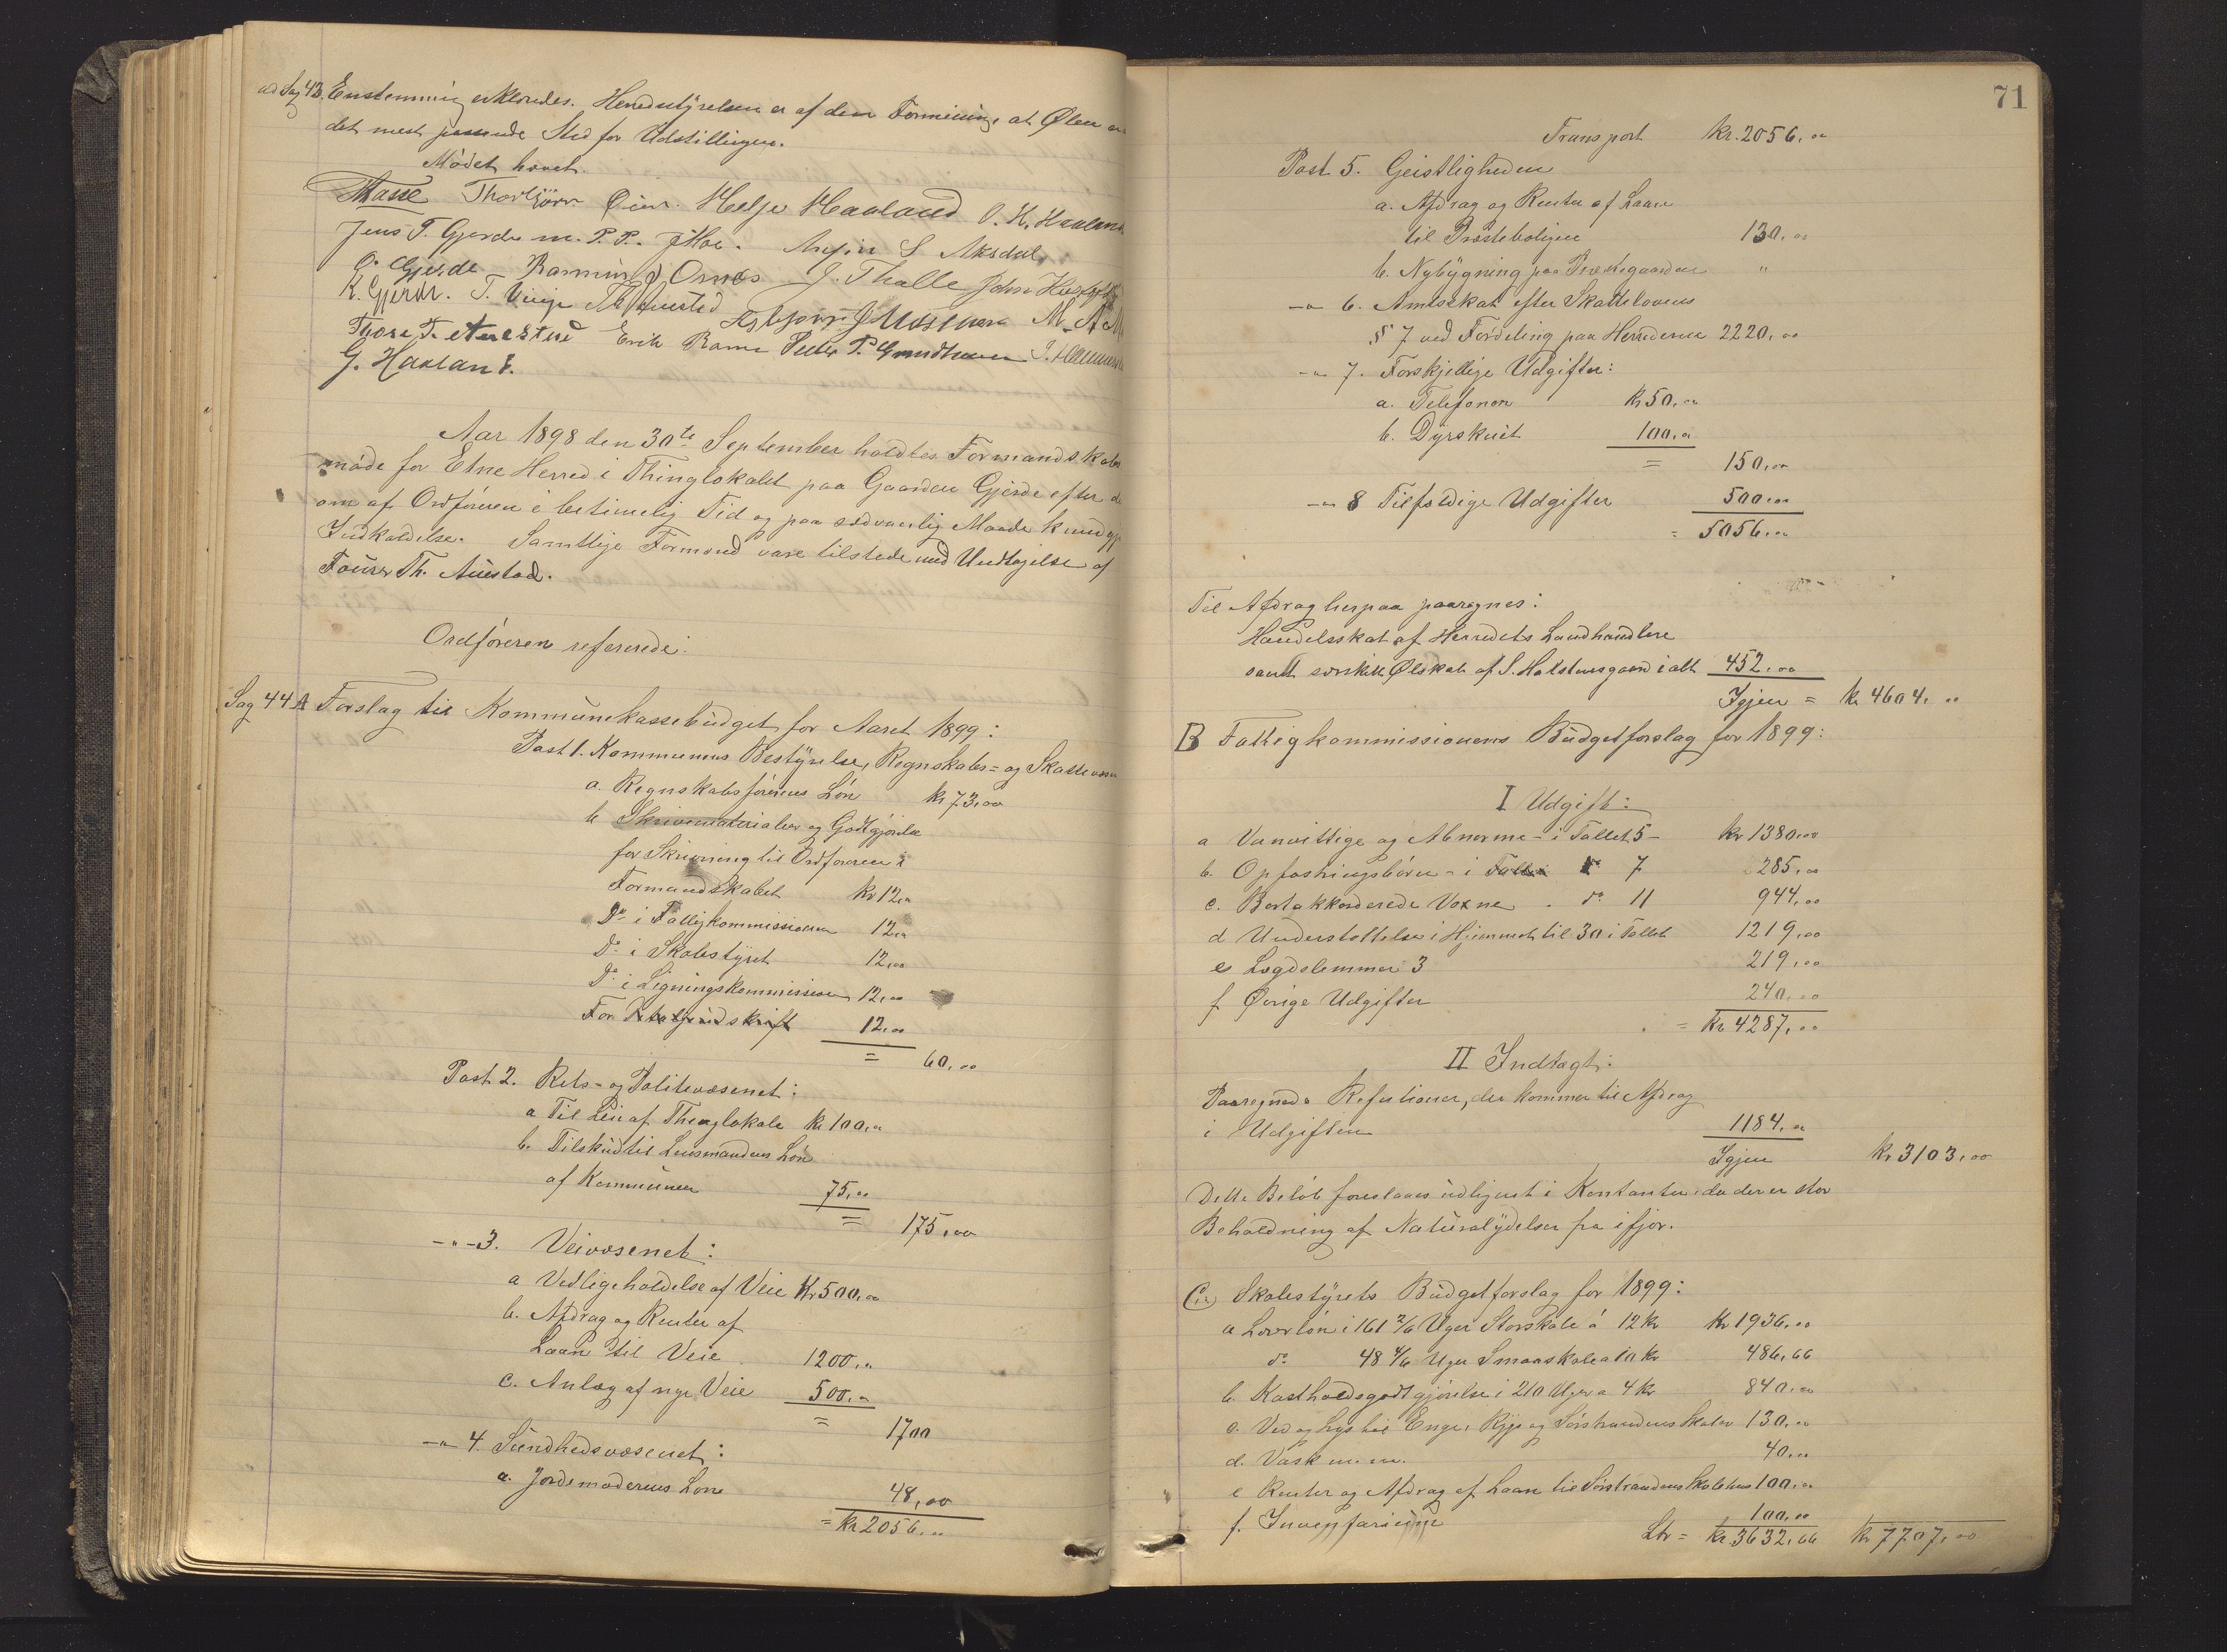 ad Sag 43. Enstemmig erklæredes. Heredsstyrelsen er af den Formening, at Ølen er
det mest passende Sted for Udstillingen.
Mödet hævet.
Thasse Thorbjörn Helje Haaland O. H. Haaland
Jens T. Gjerde m. P. P. J Moe. S Aksdal
O. Gjerde Rasmus J Ornes J. Thalle John
K. Gjerde. T. Vinje M. A.
Thore T. Austad Erik Rame Peder P. Grindheim
G. Haaland.
Aar 1898 den 30te September holdtes Formandskabs
möde for Etne Herred i Thinglokalet paa Gaarden Gjerde efter d
om af Ordföreren i betimelig Tid og paa sædvanlig Maade kundgj
Indkaldelse. Samtlige Formænd vare tilstede med Undtagelse af
Th. Austad.
Ordföreren refererede:
Sag 44 A Forslag til Kommunekassebudget for Aaret 1899:
Post 1. Kommunens Bestyrelse, Regnskabs= og Skattevæsen
a. Regnskabsförerens Lön kr 73,00
b Skrivematerialier og Godtgjörelse
for Skrivning til Ordföreren i
Formandskabet kr 12,00
Do i Fattigkommissionen 12,00
Do i Skolestyret 12,00
Do i Ligningskommissionen 12,00
For 12,00
= 60,00
Post 2. Rets- og Politivæsenet:
a Til Leie af Thinglokale kr 100,00
b. Tilskud til Lensmandens Lön
af Kommunen 75,00
= 175,00
-"-3. Veivæsenet:
a Vedligeholdelse af Veie Kr 500,00
b. Afdrag og Renter af
Laan til Veie 1200,00
c. Anlæg af nye Veie 500,00
= 1700
-"- 4. Sundhedsvæsenet:
a. Jordemoderens Lön 48,00
= kr 2056,00
71
Transport kr. 2056,00
Post 5. Geistligheden
a. Afdrag og Renter af Laan
til Præsteboligen 130,00
b. Nybygning paa Præstegaarden "
-"- 6. Amtsskat efter Skattelovens
§ 7 ved Fordeling paa Herrederne 2220,00
-"- 7. Forskjellige Udgifter:
a. Telefonen kr 50,00
b. Dyrskuet 100,00
= 150,00
-"- 8 Tilfældige Udgifter 500,00
= 5056,00
Til Afdrag herpaa paaregnes:
Handelsskat af Herredets Landhandlere
samt særskilt Ølskat af S. Halstensgaard ialt 452,00
Igjen = kr 4604,00
B Fattigkommissionens Budgetforslag for 1899:
I Udgift:
a Vanvittige og Abnorme - i Tallet 5 - kr 1380,00
b. Opfostringsbörn - i do 7 285,00
c. Bortakkorderede Voxne - do 11 944,00
d Understöttelse i Hjemmet til 30 i Tallet 1219,00
e Lægdslemmer 3 219,00
f Övrige Udgifter 240,00
= Kr 4287,00
II Indtægt:
Paaregnede Refusioner, der kommer til Afdrag
i Udgiften 1184,00
Igjen kr 3103,00
Dette Belöb foreslaaes udlignet i Kontanter da der er stor
Beholdning af Naturalydelser fra ifjor.
C. Skolestyrets Budgetforslag for 1899:
a Lærerlön i 161 2/6 Uger Storskole á 12 kr Kr 1936,00
do 48 4/6 Uger Smaaskole a 10 kr 486,66
b. Kostholdsgodtgjörelse i 210 Uger a 4 kr 840,00
c. Ved og Lys til Enge, Rygg og Sörstrandens Skoler 130,00
d. Vask m. m. 40,00
e Renter og Afdrag af Laan til Sörstrandens Skolehus 100,00
f. Inventarium 100,00
Ltr = kr. 3632,66 kr 7707,00